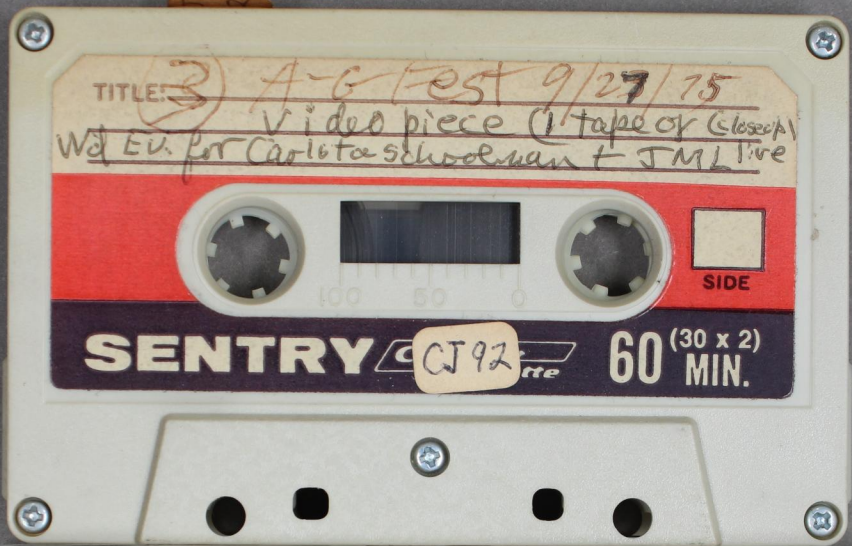 TITLE: 3 A-G Fest 9/27/75
Video piece (1 tape of (closeup)
Wd Ev. for Carlota Schoolman + JML live
SIDE
100 50 0
SENTRY C CJ92 tte 60 (30 x 2) MIN.